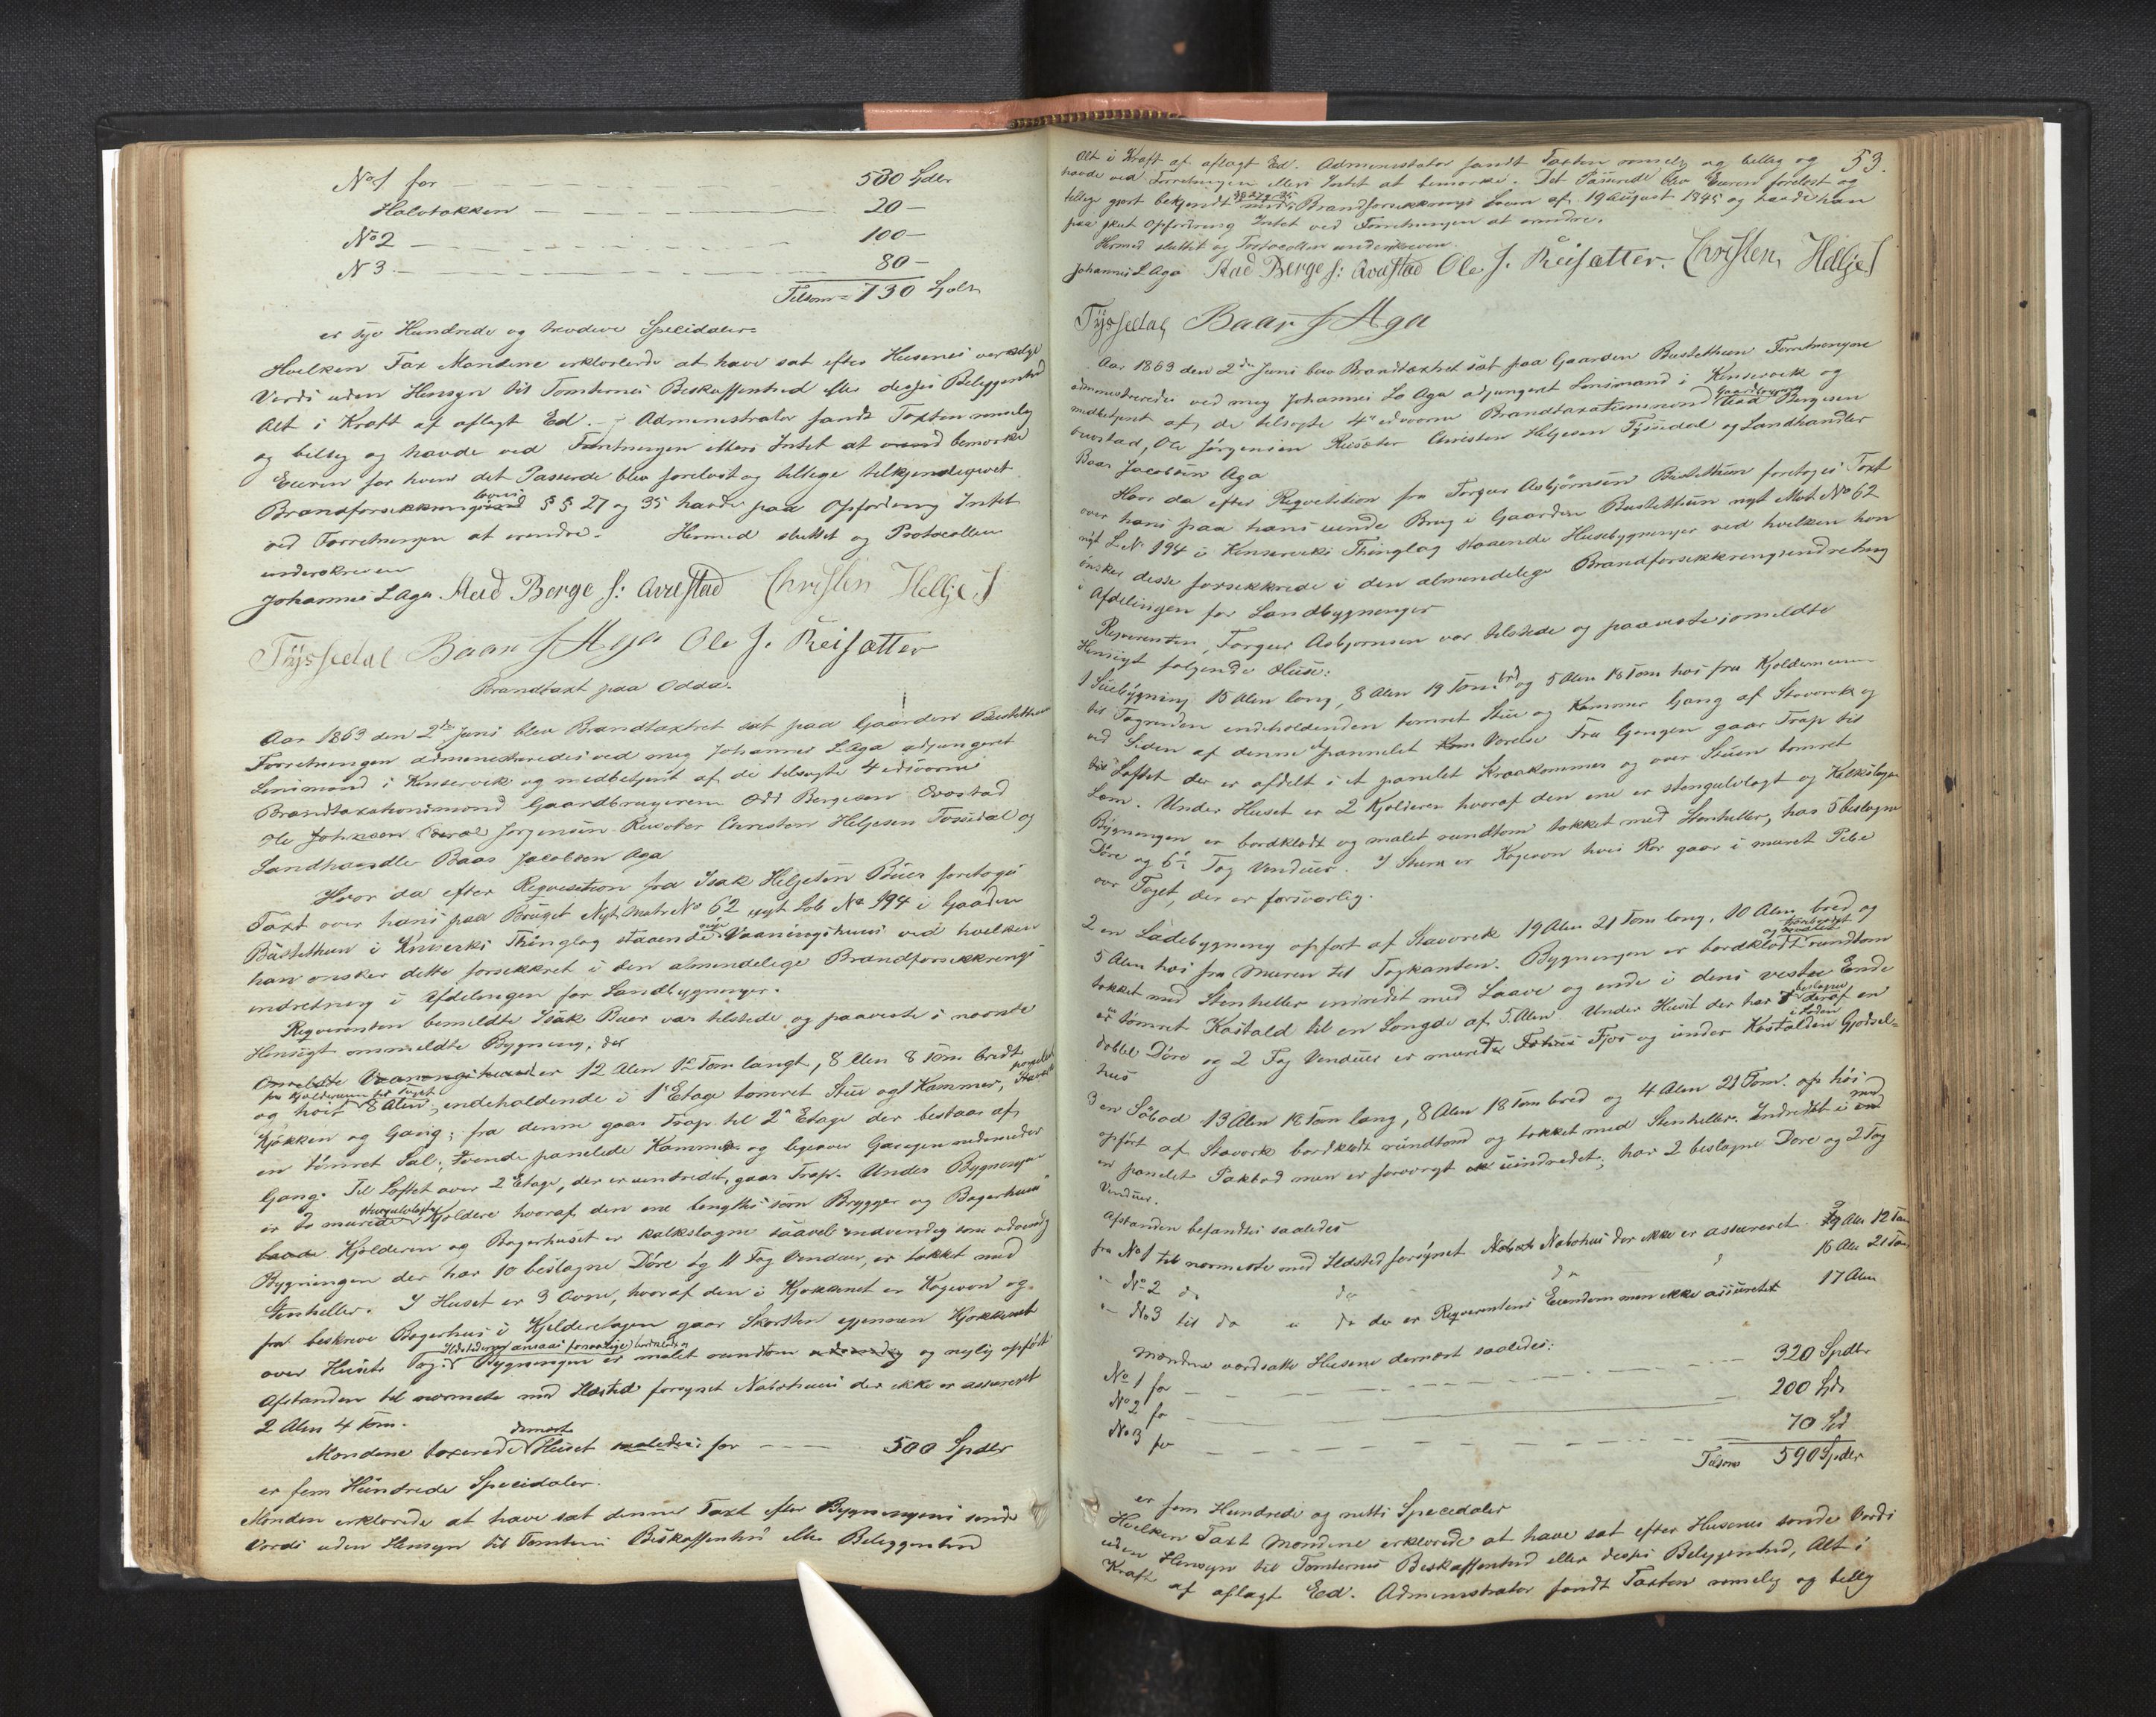 No 1 for — 530 Spdlr
Halvtakken — 20 —
No 2 — 100 —
N 3. — 80 —
Tilsam = 730 Spdlr
er syv Hundrede og tredeve Specidaler
Hvilken Tax Mændene erklærede at have sat efter Husenes verkelige
Verdi uden Hensyn til Tomternes Beskaffenhed eller disses Beleggenhed
Alt i Kraft af aflagt Ed. Administrator fandt Taxten rimelig
og bellig og havde ved Forretningen ellers Intet at bemærke
Eieren for hvem det Passerede blev forelæst og tillige tilkjendegivet
Brandforsikkrings lovens §§ 27 og 35 havde paa Opfordring Intet
ved Forretningen at erindre. Hermed sluttet og Protocollen
underskreven
Johannes L Aga Aad Berge s: Avastad Christen Helljes
Tyssedal Baar J Aga Ole J. Reisætter
Brandtaxt paa Odda.
Aar 1863 den 2de Juni blev Brandtaxtret sat paa Gaarden Bustethun
Forretningen administreredes ved mig Johannes L Aga adjungeret
Lensmand i Kinservik og medbetjent af de tilsagte 4 edsvorne
Brandtaxationsmænd Gaardbrugerne Odd Bergesen Ovastad
Ole Jørgensen Reisæter Christen Helgesen Tyssedal og
Landhandler Baar Jacobsen Aga
Hvor da efter Reqvisition fra Isak Helgesen Buer foretoges
Taxt over hans paa Bruget Nyt Matr No 62 nyt Løb No 194 i Gaarden
Bustethun i Kinserviks Thinglag staaende Vaaningshuus ved hvilken
han ønsker dette forsikkret i den almindelige Brandforsikkrings
indretning i Afdelingen for Landbygninger.
Reqvirenten bemeldte Isak Buer var tilstede og paaviste i nævnte
Hensigt ommeldte Bygning, der
er 12 Alen 12 Tom langt, 8 Alen 8 Tom bredt
og høit 8 Alen, indeholdende i 1 Etage tømret Stue og 1 Kammer,
Kjøkken og Gang; fra denne gaar Trap til 2 Etage der bestaar af
en tømret Sal, tvende panelede Kammere og ligeover Gangen nedenunder
Gang. Til Loftet over 2 Etage, der er uindredet, gaar Trap. Under Bygningen
er to murede Kjældere hvoraf den ene benyttes som Brygger og Bagerhuus
Kjælderen og Bagerhuset er kalkslagne saavel indvendig som udvendig
Bygningen der har 10 beslagne Døre og 11 Fag Vinduer, er tækket med
Stenheller. I Huset er 3 Ovne, hvoraf den i Kjøkkenet er Kogeovn og
fra beskrevne Bagerhus i Kjelderetagen gaar Skorsten igjennem Kjøkkenet
over Husets Tag. Ildstederne ansaaes forsvarlige. Bygningen er malet rundtom og nylig opført
Afstanden til nærmeste med Ildsted forsynet Nabohuus der ikke er assureret
2 Alen 4 Tom.
Mændene taxerede dernæst Huset for — 500 Spdlr
er fem Hundrede Specidaler.
Mænden erklærede at have sat denne Taxt efter Bygningens sande
Verdi uden Hensyn til Tomtens Beskaffenhed eller Beleggenhed
53.
Alt i Kraft af aflagt Ed. Administrator fandt Taxten rimelig og bellig og
havde ved Forretningen ellers Intet at bemærke. Det Passerede blev Eieren forelæst og
tillige gjort bekjendt med §§ 27 og 35 i Brandforsikkrings Loven af 19 August 1845 og havde han
paa skeet Opfordring Intet ved Forretningen at erindre.
Hermed sluttet og Protocollen underskreven
Johannes L Aga Aad Berge s: Avastad Ole J. Reisætter. Christen Helljes
Tyssedal Baar J Aga
Aar 1863 den 2de Juni blev Brandtaxtret sat paa Gaarden Bustethun Forretningen
administreredes ved mig Johannes Ls Aga adjungeret Lensmand i Kinservik og
medbetjent af de tilsagte 4 edsvorne Brandtaxationsmænd Gaardbrugerne Aad Bergesen
Ovastad, Ole Jørgensen Reisæter Christen Helgesen Tyssedal og Landhandler
Baar Jacobsen Aga
Hvor da efter Reqvisition fra Torger Asbjørnsen Bustethun foretoges Taxt
over hans paa hans eiende Brug i Gaarden Bustethun nyt Mat No 62
nyt L No 194 i Kinserviks Thinglag staaende Husebygninger ved hvilken han
ønsker disse forsikkrede i den almindelige Brandforsikkringsindretning
i Afdelingen for Landbygninger
Reqvirenten, Torger Asbjørnsen var tilstede og paaviste i omeldte
Hensigt følgende Huse:
1 Stuebygning 15 Alen lang, 8 Alen 19 Tom. bred og 5 Alen 18 Tom høi fra Kjeldermuren
til Tagrenden indeholdenden tømret Stue og Kammer Gang af Stavværk og
ved Siden af denne et pannelet Værelse Fra Gangen gaar Trap til
Loftet der er afdelt i et panelet Kraakammer og over Stuen tømret
Lem. Under Huset er 2 Kjeldere hvoraf den ene er stengulvlagt og Kalkslagen
Bygningen er bordklædt og malet rundtom tækket med Stenheller, har 5 beslagne
Døre og 6 Fag Vinduer. I Stuen er Kogeovn hvis Rør gaar i muret Pibe
over Taget, der er forsvarlig.
2 en Ladebygning opført af Stavverk 19 Alen 21 Tom lang, 10 Alen bred og
5 Alen høi fra Muren til Tagkanten. Bygningen er bordklædt rundtom
tækket med Stenheller inredet med Laave og ende i dens vestre Ende
er tømret Kostald til en Længde af 7 Alen. Under Huset der har beslagne deraf en
dobbel Døre og 2 Fag Vinduer er muret Fjøs og under Kostalden Gjødsel-
hus
3 en Søbod 13 Alen 18 Tom lang, 8 Alen 18 Tom bred og 4 Alen 21 Tom. høi
opført af Stavverk bordklædt rundtom og tækket med Stenheller. Indredet med
en panelet Pakbod men er forøvrigt uindredet, har 2 beslagne Døre og 2 Fag
Vinduer.
Afstanden befandtes saaledes
fra No 1 til nærmeste med Ildsted forsynet Nabohus der ikke er assureret 12 Tom
" No 2 do do 16 Alen 21 Tom
" No 3 til do do der er Reqvirentens Eiendom men ikke assureret 17 Alen
Mændene værdsatte Husene dernæst saaledes:
No 1 for — 320 Spdlr
No 2 for — 200 Spd
No 3 for — 70 Spd
Tilsam 590 Spdlr
er fem Hundrede og nitti Specidaler
Hvilken Taxt Mændene erklærede at have sat efter Husenes sande Verdi
uden Hensyn til Tomternes Beskaffenhed eller disses Beliggenhed, Alt i
Kraft af aflagt Eed. Administrator fandt Taxten rimelig og bellig